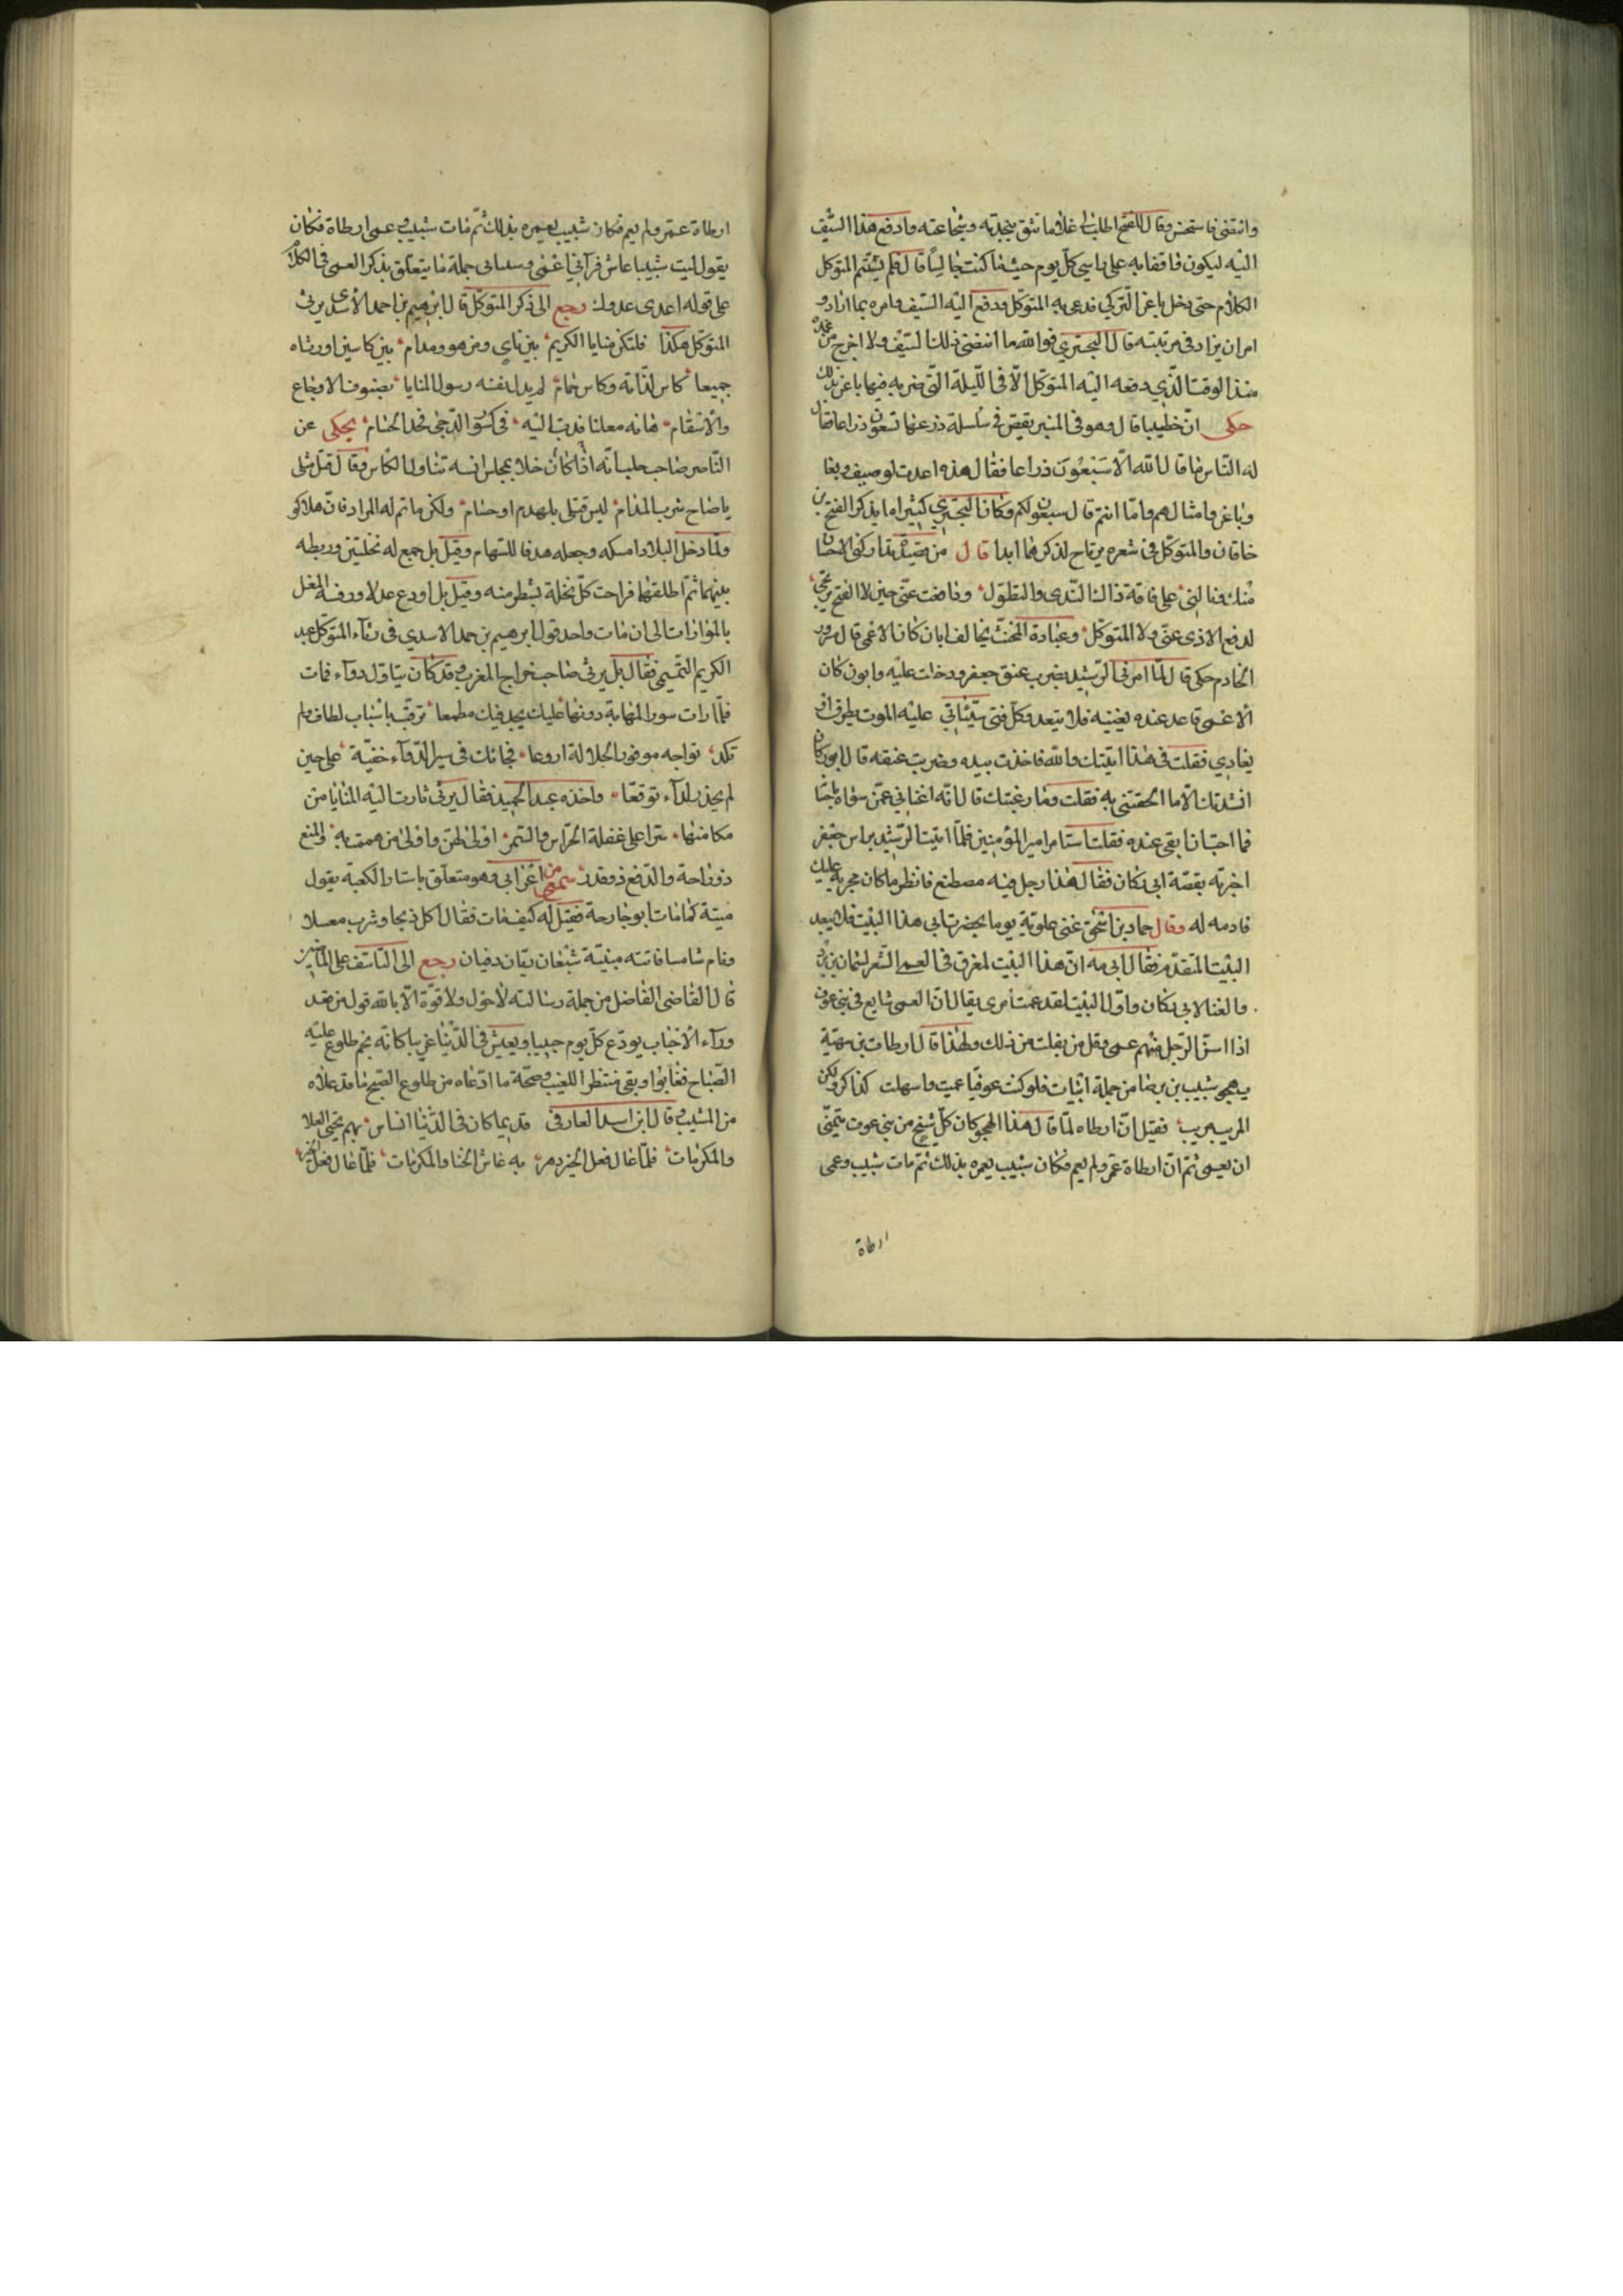 وانتضى فاستحسن وقال للفتح اطلب لي غلاما تثق بنجدته وشجاعته وادفع هذا السّيف
اليه ليكون واقفا به على راسي كلّ يوم حيثما كنت جالسًا قال فلم يستتم المتوكل
الكلام حتى دخل باغر التّركي فدعى به المتوكّل ودفع اليه السّيف وامره بما اراد و
امر ان يزاد في مرتبته قال البحتري فوالله ما انتضى ذلك السّيف ولا اخرج من غمده
منذ الوقت الّذي دفعه اليه المتوكّل الّا في اللّيلة الّتي ضربه فيها باغر بذلك
حكى انّ خطيبا قال وهو في المنبر يقص في سلسلة ذرعها تسعون ذراعا فقال
له النّاس ما قال الله الّا سَبْعُونَ ذراعا فقال هذه اعدت لوصيف وبغا
وباغر وامثالهم وامّا انتم قال سبعون لكم وكان البحتري كثيراما يذكر الفتح بن
خاقان والمتوكّل في شعره يرتاح لذكرهما ابدا قال من قصيدة تداركني الاحسان
منك ونالني على فاقة ذاك النّدى والتطوّل ودافعت عنّي حين لا الفتح يرتجى
لدفع الاذى عنّي ولا المتوكّل وعبادة المخنّث يخالف ابان كان الاعمى قال مسرور
الخادم حكى قال لمّا امرني الرّشيد بضرب عنق جعفر ودخلت عليه وابو زكار
الاعمى قاعد عنده يغنيه فلا يبعد وكلّ فتى سيّأتي عليه الموت يطرق او
يغادي فقلت في هذا اتيتك والله فاخذت بيده وضربت عنقه قال ابو زكار
انشدتك الّا ما الحقتني به فقلت وما رغبتك قال انّه اغناني عمّن سواه باحسانه
فما احبّ ان ابقى عنده فقلت استامر امير المؤمنين فلمّا اتيت الرّشيد براس جعفر
اخبرته بقصّة ابي زكان فقال هذا رجل فيه مصطنع فانظر ما كان يجريه عليك
فادمه له وقال حماد بن اسحٰق غنى علويّة يوما بحضرت ابي هذا البيت فلا يبعد
البيت المتقدّم فقال ابي مه انّ هذا البيت لمغرق في العمى الشّعر لبشار بن برد
والغنا لابي زكان واوّل البيت لقد عمت امرى يقال انّ العمى شايع في بني عوف
اذا اسنّ الرّجل منهم عمى وقل من يفلت من ذلك ولهذا قال ارطات بن سهيّة
يهجو شبيب بن برصا من جملة ابيات فلو كنت عوفيّا عميت واسهلت كذا كرو لكن
المريب مريب فقيل انّ ارطاه لمّا قال هذا الهجو كان كلّ شيخ من بني عوف يتمنّى
ان يعمى ثمّ انّ ارطاة عمّر ولم يعم فكان شبيب يعيره بذلك ثمّ مات شبيب وعمى
ارطاة
ارطاة عمّر ولم يعم فكان شبيب يعيره بذلك ثمّ مات شبيب وعمى ارطاة فكان
يقول ليت شبيبا عاش فرآني اعمى وسلمانى جملة ما يتعلّق بذكر العمى في الكلام
على قوله اعدى عدوك رجع الى ذكر المتوكّل قال ابرٰهيم بن احمد الاسدي يرثي
المتوكّل هكذا فلتكن منايا الكريم بين ناي ومزهر ومدام بين كاسين اورثاه
جميعا كاس لذّاته وكاس حمام لم يذل نفسه رسول المنايا بصنوف الاوجاع
والاسقام هابه معلنا فدبّ اليه في كسور الدّجى بحد الحسام يحكى عن
النّاصر صاحب حلب انّه اذا كان خلا بمجلس انسه تناول الكأس وقال قتل مثلى
يا صاح شرب المدام ليس قتلى بلهذم او حسام ولكن ما تم له المراد فان هلاكو
ولمّا دخل البلاد امسكه وجعله هدفا للسّهام وقيل بل جمع له نخلتين وربطه
بينهما ثمّ اطلقهما فراحت كلّ نخلة بشطر منه وقيل بل اودع عدلا ورفسه المغل
بالموازات الى ان مات واخذ قول ابرهيم بن احمد الاسدي في رثآء المتوكل عبد
الكريم التّميمى فقال بل يرثى صاحب خراج المغرب وقد كان يتناول دوآء فمات
فلمّا رات سور المهابة دونها عليك ولم يجد فيك مطمعا ترقّت باسباب لطاف ولم
تكد تواجه موفور الجلالة اروعا فجائتك في سر الدّوآء خفيّة على حين
لم يحذر لدآء توقعا واخذه عبد الحميد فقال يرثى ثارت اليه المنايا من
مكامنها سرّا على غفلة الحرّاس والسّمر اولى لهنّ واولى من هممت به والمنع
ذو راحة والدّفع ذو قدر سمع من اعرابي وهو متعلّق باستار الكعبة يقول
ميتة كما مات ابو خارجة فقيل له كيف مات فقال اكل بذجا وشرب معسلا
ونام شامسا فاتته ميتته شبعان ريّان دفيان رجع الى التّاسّف على الماضين
قال القاضى الفاضل من جملة رسالته لاحول ولا قوّة الّا بالله قول من قعد
ورآء الاحباب يودّع كلّ يوم حبيبا ويعيش في الدّنيا غريبا كانّه نجم طلوع عليه
الصّباح فغابوا وبقى منتظرا للغيب وصحّة ما ادّعاه من طلوع الصّبح ما قد علاه
من المشيب وقال ابن اسد الفارقى قد بما كان في الدّنيا اناس بهم تحيى العلا
والمكرمات فلمّا غال فعل الخير دهر به عاش الخنا والمكرمات فلمّا غال فعل الخير